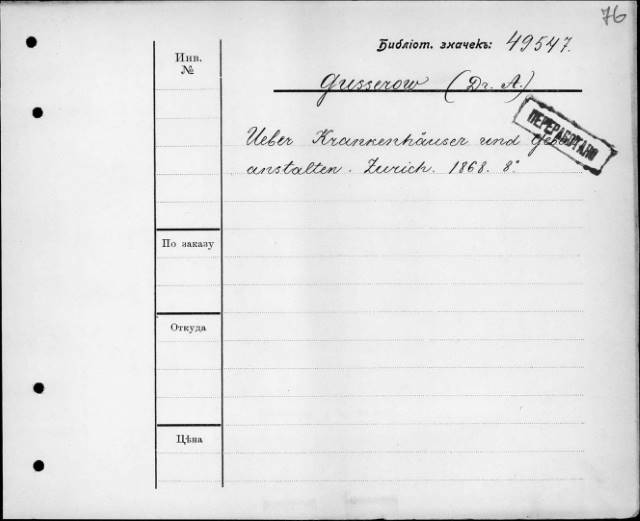 76
Библіот. значекъ: 49547.
Инв.
№
Gusserow (Dr. A.)
ПЕРЕРАБОТАНО
Ueber Krankenhäuser und
anstalten. Zürich. 1868. 8°
По заказу
Откуда
Цѣна